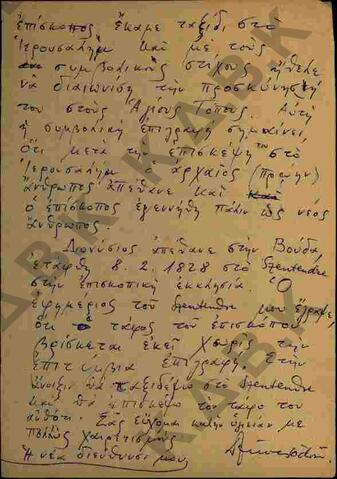 ἐπίσκοπος ἔκαμε ταξίδι στὸ
Ἱερουσαλὴμ καὶ μὲ τοὺς
συμβολικοὺς στίχους ἤθελε
νὰ διαιωνίση τὴν προσκύνησή
του στοὺς Ἁγίους Τόπους. Αὐτὴ
ἡ συμβολικὴ ἐπιγραφὴ σημαίνει,
ὅτι μετὰ τὴν ἐπίσκεψή του στὸ
Ἱερουσαλὴμ ὁ ἀρχαῖος (πρώην)
ἄνθρωπος ἀπέθανε καὶ
ὁ ἐπίσκοπος ἐγεννήθη πάλιν ὡς νέος
ἄνθρωπος.
Διονύσιος ἀπέθανε στὴν Βούδα,
ἐτάφθη 8.2.1828 στὸ Szentendre
στὴν ἐπισκοπικὴ ἐκκλησία. Ὁ
ἐφημέριος τοῦ Szentendre μου ἔγραψε,
ὅτι ὁ τάφος τοῦ ἐπισκόπου
βρίσκεται ἐκεῖ χωρὶς τὴν
ἐπιτύμβια ἐπιγραφή. Στὴν
ἄνοιξιν θὰ ταξιδέψω στὸ Szentendre
καὶ θὰ ἐπισκεφθῶ τὸν τάφο του
αὐθότι. Σᾶς εὔχομαι καλὴν ὑγείαν μὲ
πολλοὺς χαιρετισμοὺς
Ἡ νέα διεύθυνσί μου
ΚΑΒΚ